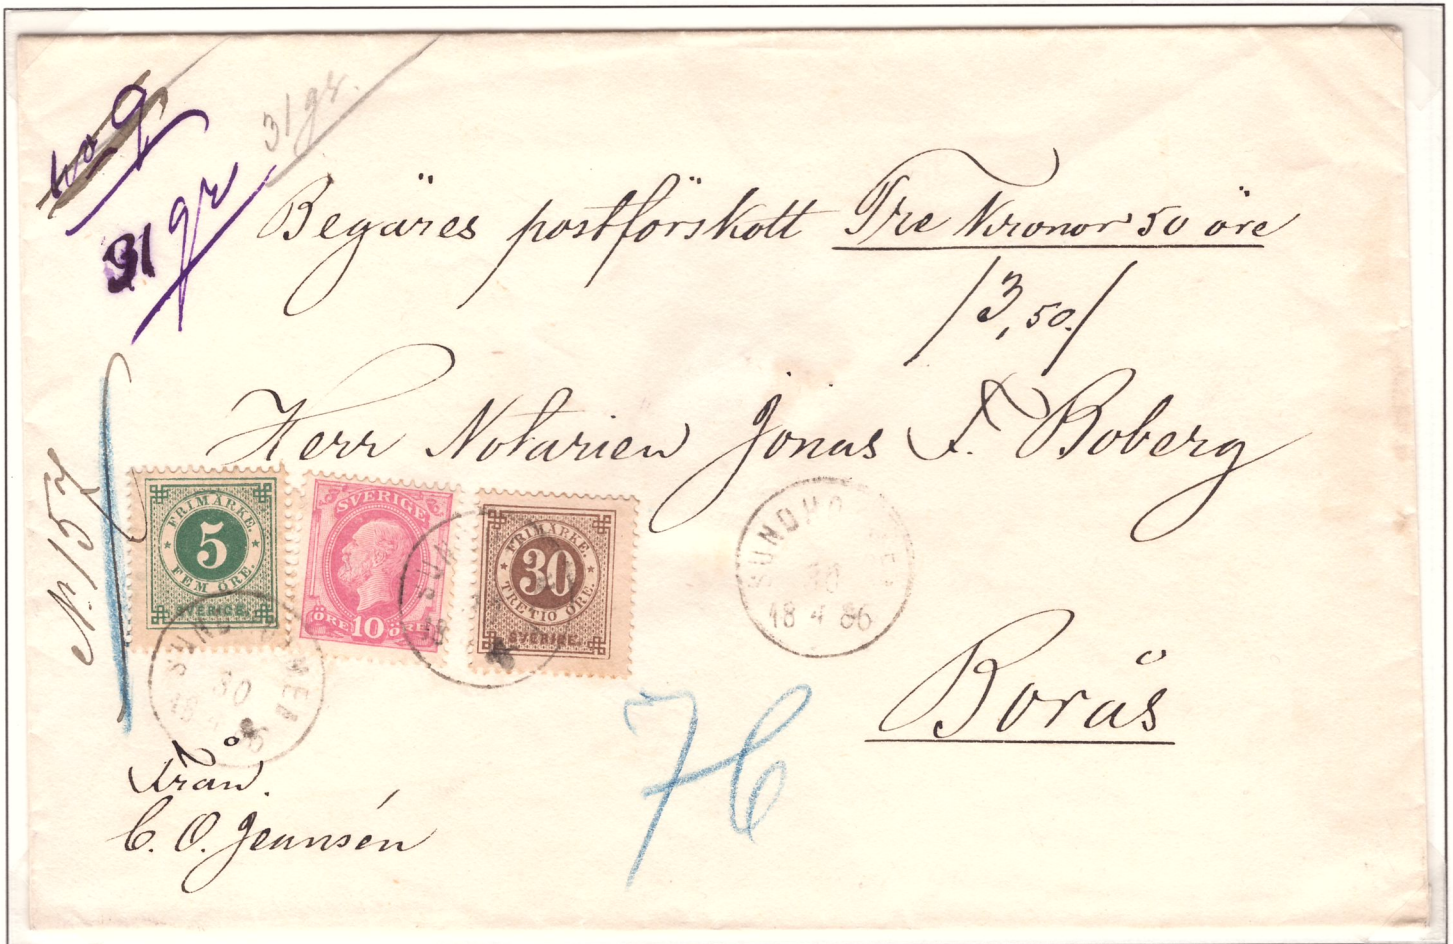 31 gr.
31 gr
Begäres postförskott Tre Kronor 50 öre
/3,50./
Herr Notarien Jonas F. Boberg
Borås
N. 157
FRIMÄRKE.
5
FEM ÖRE.
SVERIGE.
SVERIGE
ÖRE 10 ÖRE
FRIMÄRKE.
30
TRETIO ÖRE.
SVERIGE.
30
18 4 86
30
76
Från.
C. O. Jeansén